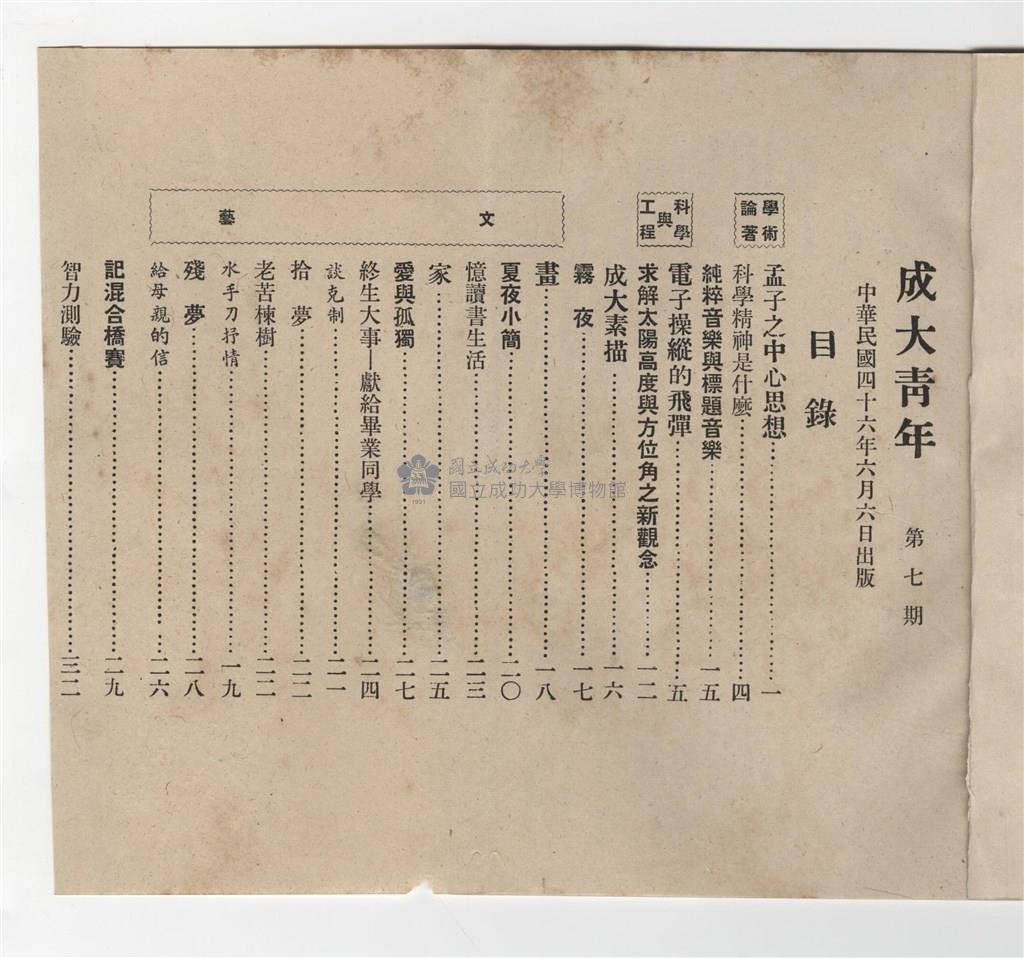 成大青年 第七期
中華民國四十六年六月六日出版
目錄
學術論著
孟子之中心思想……一
科學精神是什麼……四
純粹音樂與標題音樂……一五
科學與工程
電子操縱的飛彈……五
求解太陽高度與方位角之新觀念……一二
成大素描……一六
霧夜……一七
文藝
畫……一八
夏夜小簡……二〇
憶讀書生活……二三
家……二五
愛與孤獨……二七
終生大事—獻給畢業同學……二四
談克制……二一
拾夢……二二
老苦楝樹……二二
水手刀抒情……一九
殘夢……二八
給母親的信……二六
記混合橋賽……二九
智力測驗……三二
國立成功大學
國立成功大學博物館
1931